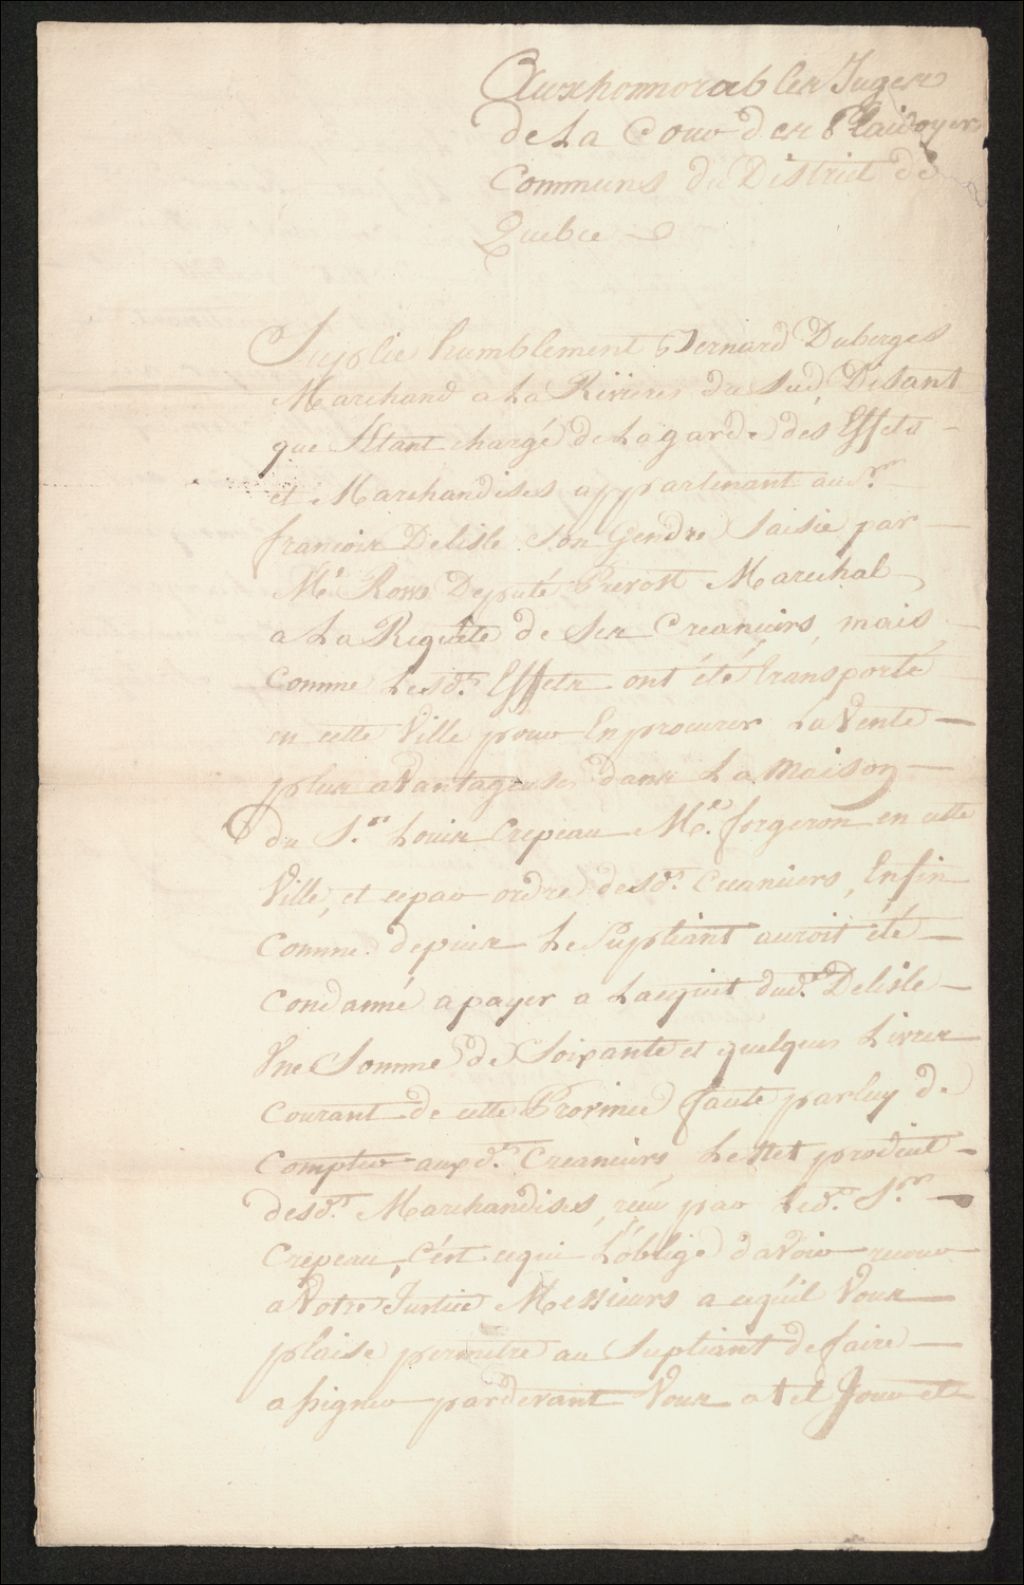 Aux honnorables Juges
de La Cour des Plaidoyers
Communs du District de
Quebec
Suplie humblement Bernard Duberges
Marchand a La Riviere du Sud, Disant
que S'Etant chargé de La garde des Effets
et Marchandises appartenant au Sr.
francois Delisle Son Gendre Saisie par
Mr. Ross Deputé Prevost Marechal
a La Requete de Ses Creanciers, mais
Comme Lesds. Effets ont été transporté
en cette Ville pour En procurer La Vente
plus aVantageuse dans La Maison
du S.r Louis Crepeau Me. forgeron en cette
Ville, et cepar ordre desds. Creanciers, Enfin
Comme depuis Le Supliant auroit été
Condamné a payer a Lacquit dudt. Delisle
Vne Somme de Soixante et quelques Livres
Courant de cette Province faute par luy de
Compter auxds. Creanciers Le Net produit
desds. Marchandises, reçu par Ledt. S.r
Crepeau, C'est cequi L'oblige d'aVoir recour
a Votre Justice Messieurs a cequ'il Vous
plaise permetre au Supliant de faire
assigner pardevant Vous a tel Jour et